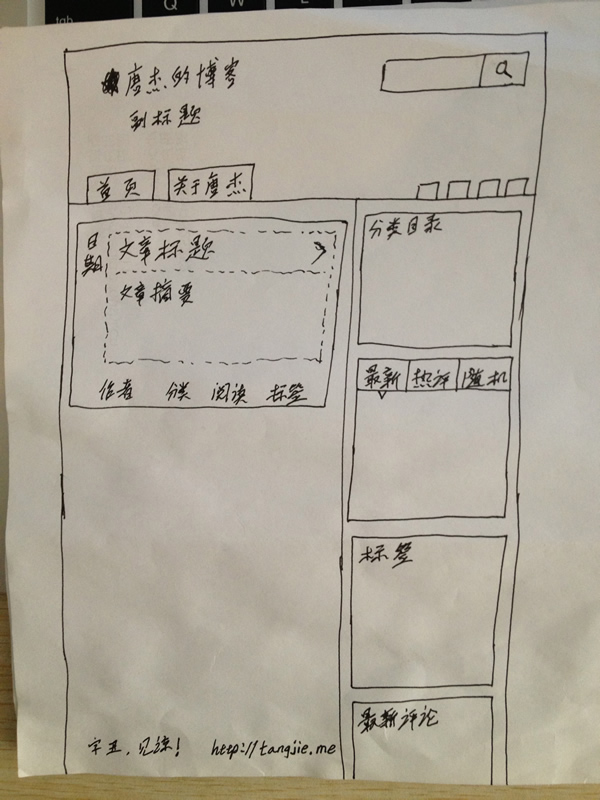 唐杰的博客
副标题
首页 关于唐杰
日期
文章标题
文章摘要
作者 分类 阅读 标签
分类目录
最新 热评 随机
标签
最新评论
字丑,见谅! http://tangjie.me
Q W E
tab